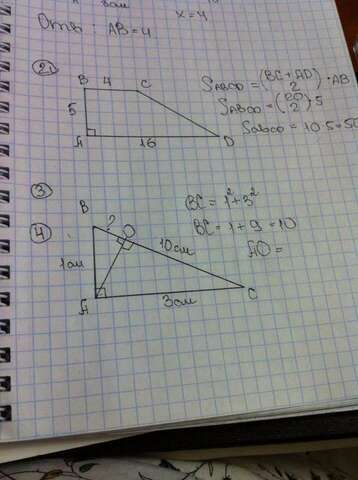 x=4
Ответ: AB=4
2)
B 4 C
5
A 16 D
SABCD = (BC+AD)/2 · AB
SABCD = (20/2) · 5
SABCD = 10·5=50
3
4
B
?
O
10см
1см
A 3см C
BC = 1²+3²
BC = 1+9=10
AO =